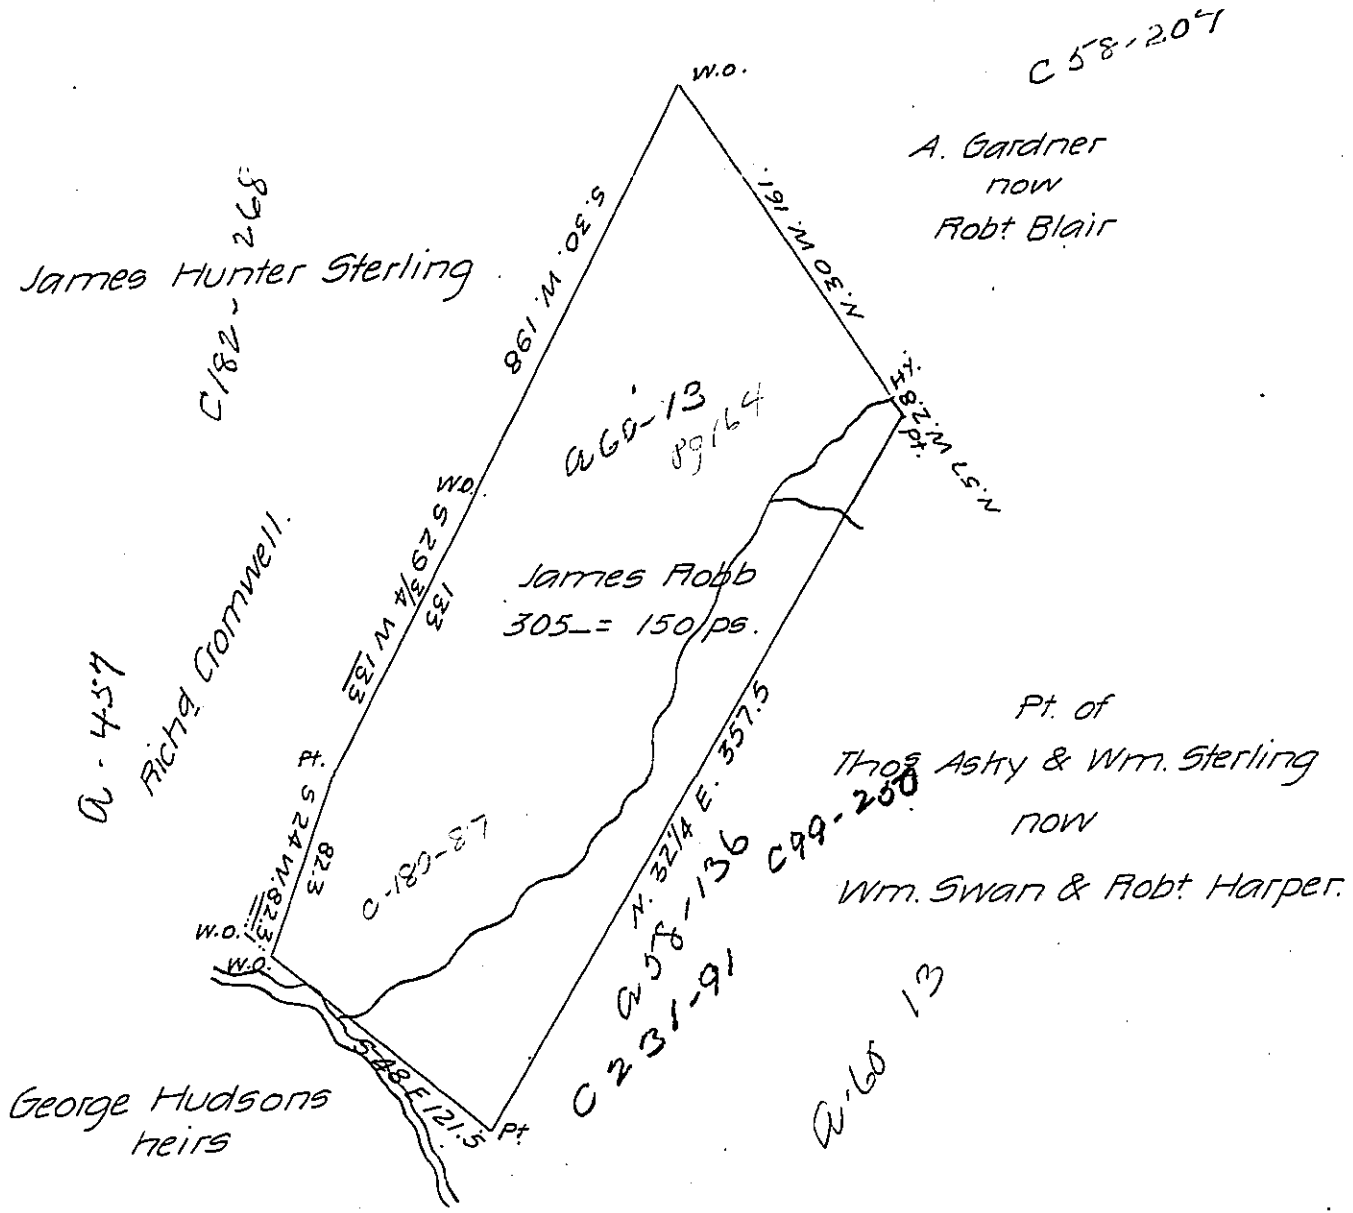 C 58-207
W.O.
A. Gardner
now
Robt Blair
N. 30 W. 161.
S. 30. W. 198
James Hunter Sterling
C182-268
Hy.
N. 57 W. 2.8
Pt.
a60-13
89164
W.O.
S 29 3/4 W 133
133
James Robb
305_= 150 ps.
Richd Cromwell.
a-457
Pt.
S 24 W. 82.3
82.3
W.O.
W.O.
C-180-87
N. 32 1/4 E. 357.5
Pt. of
Thos Ashy & Wm. Sterling
now
Wm. Swan & Robt Harper.
C99-250
a58-136
C231-91
a-60 13
S 48 E 121.5
Pt
George Hudsons
heirs